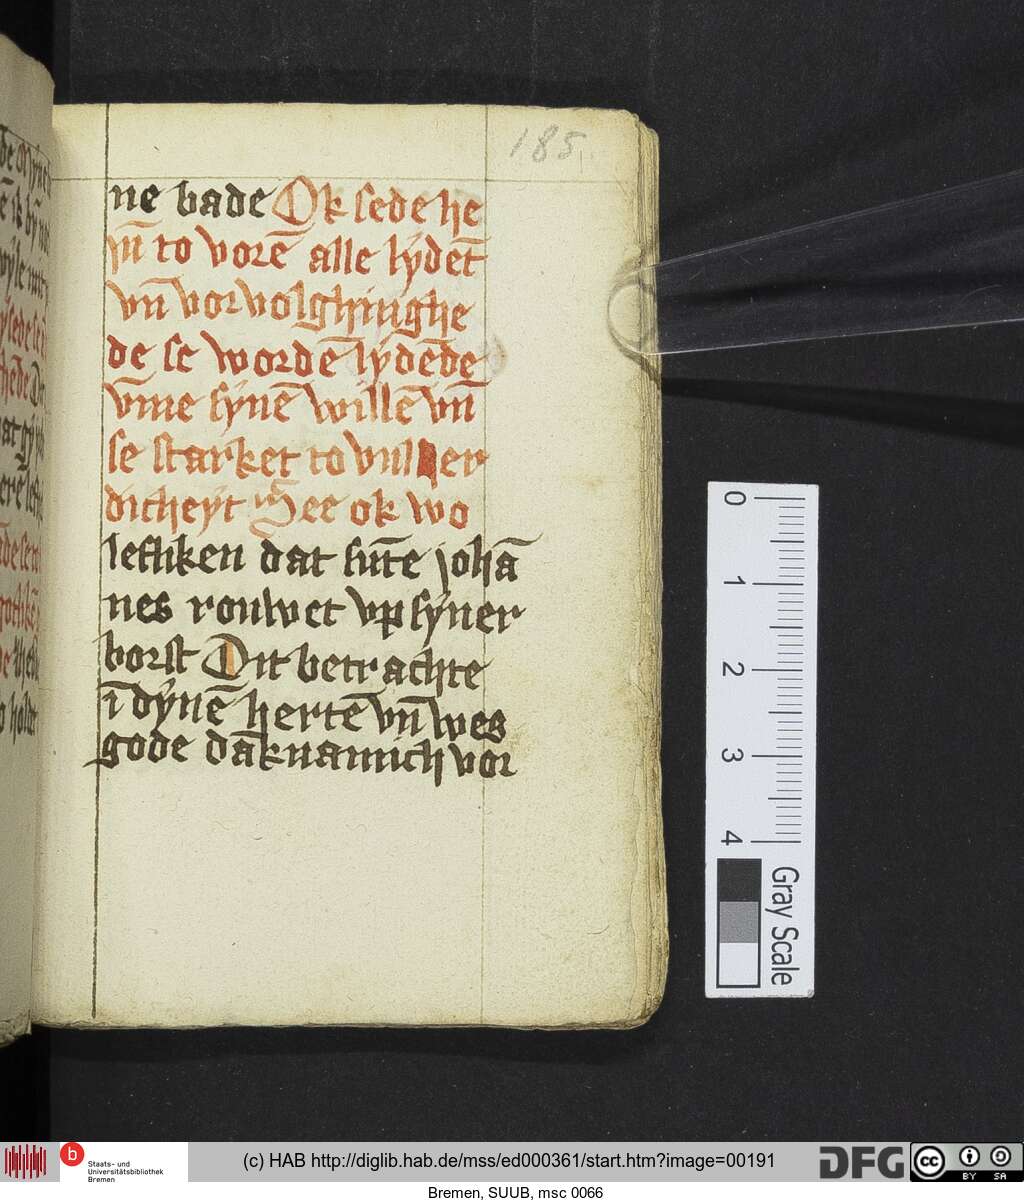 185
ne bade Ok sede he
vn̄ to vorē alle lydēt
vn̄ vorvolghinghe
de se wordē lydēde
vm̄e synē willē vn̄
se starket to vul er
dicheyt See ok wo
lefliken dat sūte johā
nes rouwet vp syner
borst Dit betrachte
ī dynē hertē vn̄ wes
gode dāknamich vor
0
1
2
3
4
Gray Scale
b
Staats- und
Universitätsbibliothek
Bremen
(c) HAB http://diglib.hab.de/mss/ed000361/start.htm?image=00191
DFG
cc BY SA
Bremen, SUUB, msc 0066